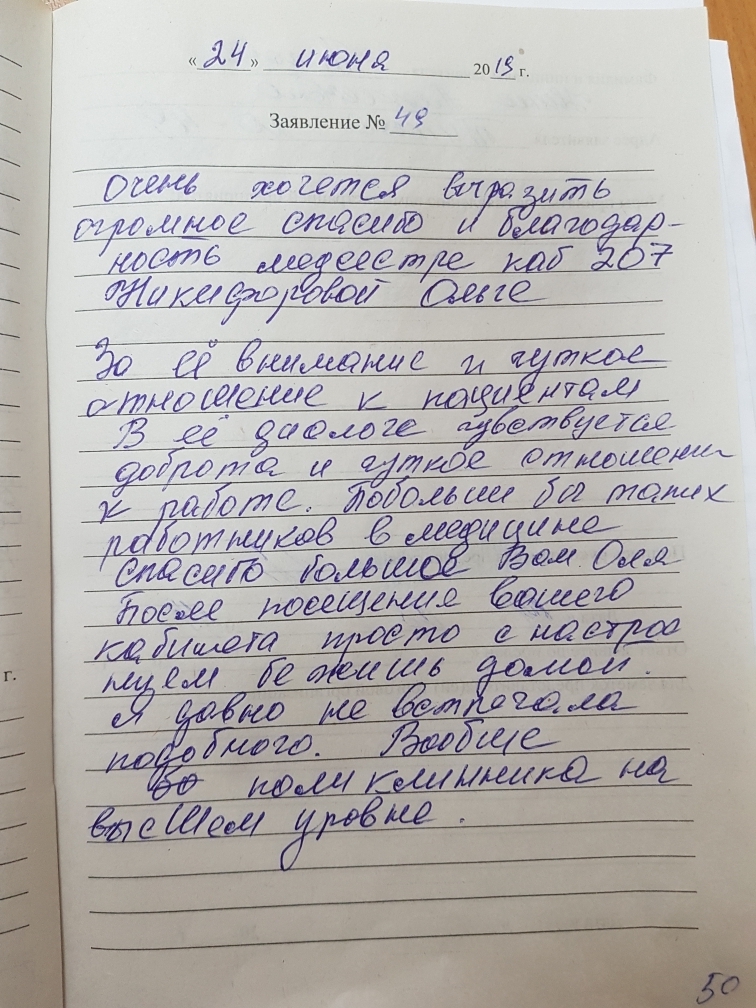 «24» июня 2019 г.
Заявление № 49
Очень хочется выразить
огромное спасибо и благодар-
ность медсестре каб 207
Никифоровой Ольге
За её внимание и чуткое
отношение к пациентам
В её диалоге чувствуется
доброта и чуткое отношени
к работе. Побольши бы таких
работников в медицине
спасибо большое Вам Оля
После посещения вашего
кабинета просто с настрое
нием бежишь домой.
я давно не встречала
подобного. Вообще
поликлинника на
высшем уровне.
г.
50